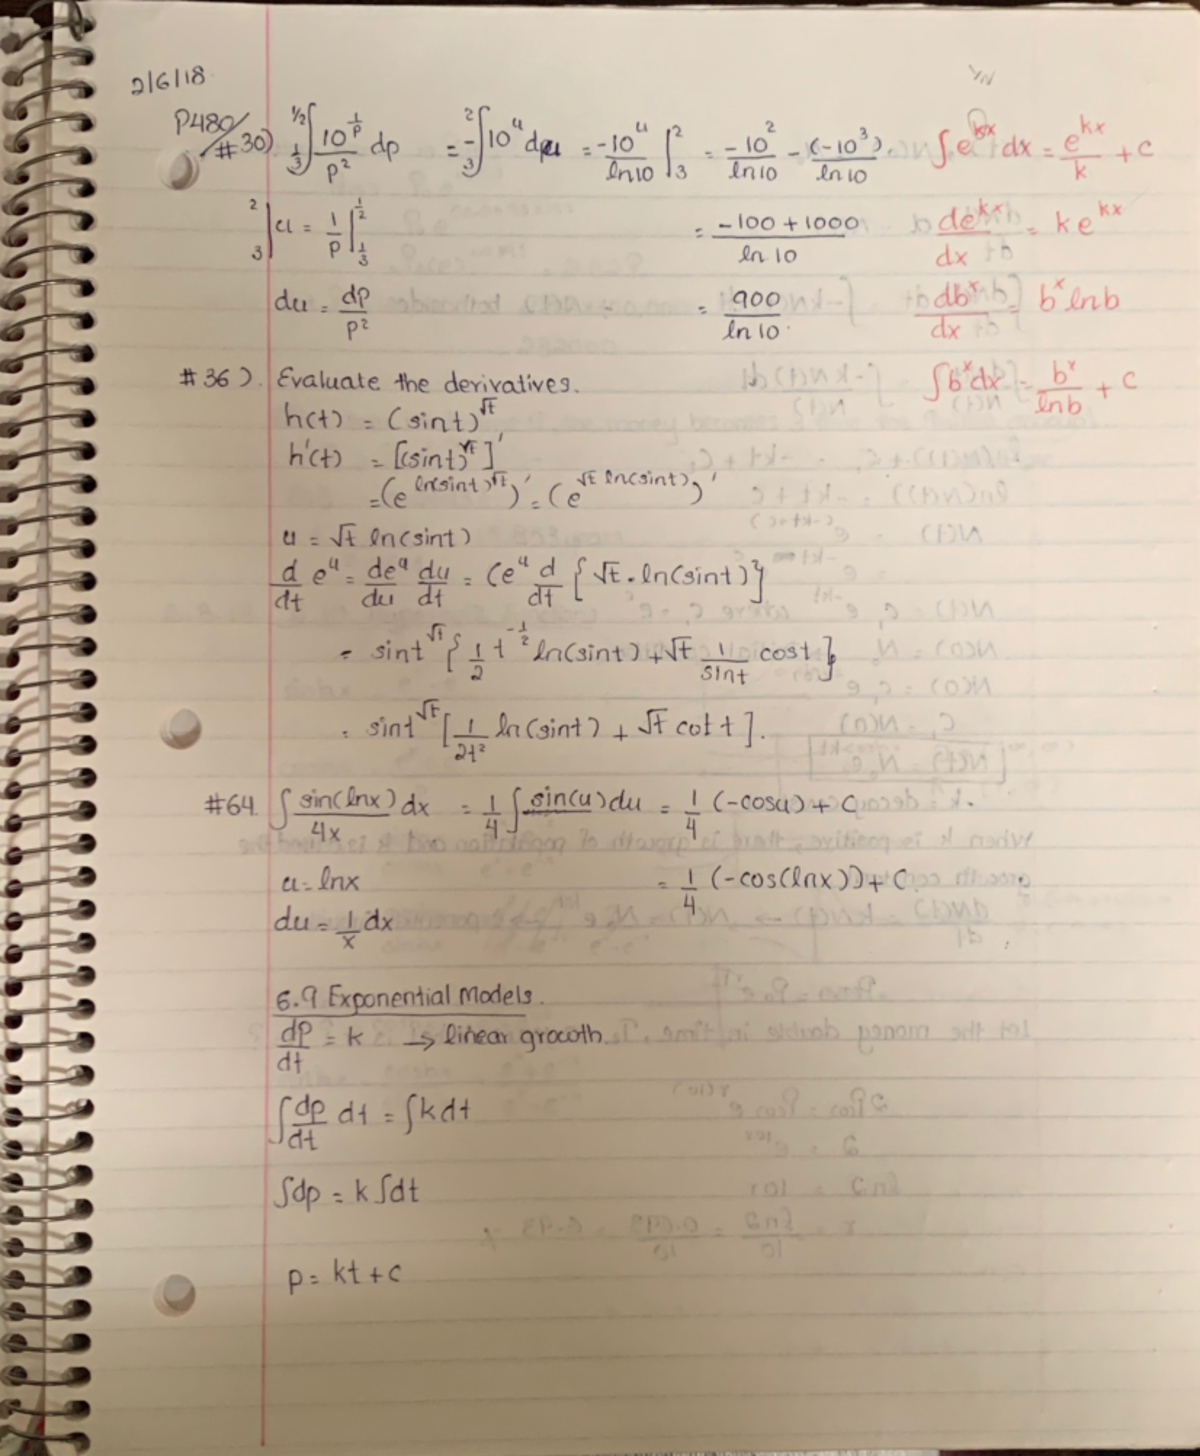 2/6/18
P480/#30) ∫_{1/3}^{1/2} 10^{1/p}/p² dp = -∫_3^2 10^u du = -10^u/ln10 |_3^2 = -10²/ln10 - (-10³)/ln10 ∫e^{kx} dx = e^{kx}/k + c
2 3 | u = 1/p |_{1/3}^{1/2} = -100+1000/ln 10 de^{kx}/dx = ke^{kx}
du = dp/p² = 900/ln 10. db^x/dx = b^x lnb
#36). Evaluate the derivatives. ∫b^x dx = b^x/lnb + c
h(t) = (sint)^{√t}
h'(t) = [(sint)^{√t}]'
= (e^{ln(sint)^{√t}})' = (e^{√t ln(sint)})'
u = √t ln(sint)
d/dt e^u = de^u/du du/dt = (e^u d/dt {√t · ln(sint)}
= sint^{√t} { 1/2 t^{-1/2} ln(sint) + √t 1/sint cost }
= sint^{√t} [ 1/2t² ln(sint) + √t cot t ].
#64. ∫ sin(lnx)/4x dx = 1/4 ∫ sin(u) du = 1/4 (-cosu) + C.
u = lnx = 1/4 (-cos(lnx)) + C.
du = 1/x dx
6.9 Exponential Models.
dp/dt = k → linear growth.
∫ dp/dt dt = ∫k dt
∫dp = k∫dt
p = kt + c